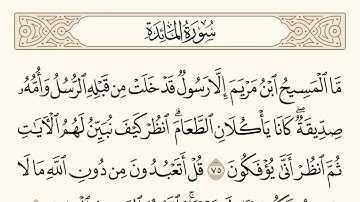 سُورَةُ المَائِدَةِ
مَّا ٱلْمَسِيحُ ٱبْنُ مَرْيَمَ إِلَّا رَسُولٌ قَدْ خَلَتْ مِن قَبْلِهِ ٱلرُّسُلُ وَأُمُّهُۥ
صِدِّيقَةٌ ۖ كَانَا يَأْكُلَانِ ٱلطَّعَامَ ۗ ٱنظُرْ كَيْفَ نُبَيِّنُ لَهُمُ ٱلْآيَٰتِ
ثُمَّ ٱنظُرْ أَنَّىٰ يُؤْفَكُونَ ٧٥ قُلْ أَتَعْبُدُونَ مِن دُونِ ٱللَّهِ مَا لَا